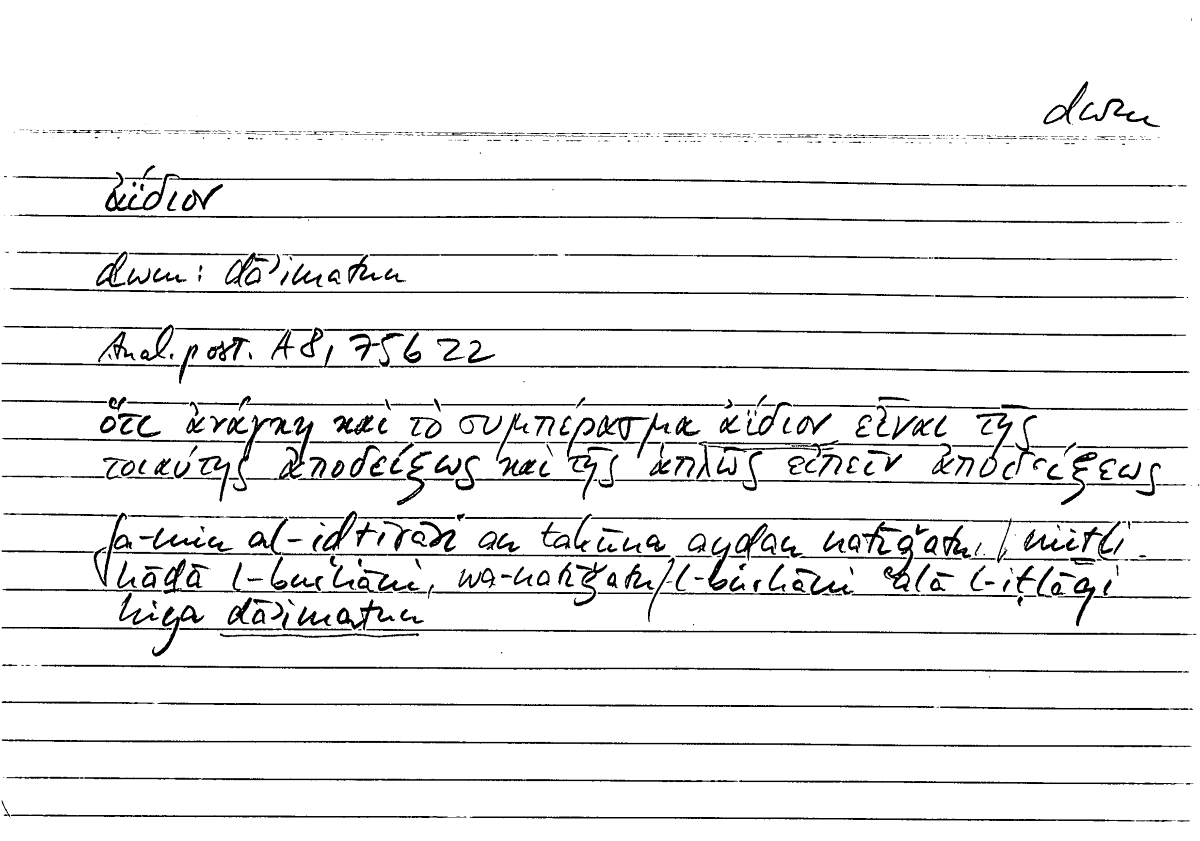 dwm
ἀΐδιον
dwm: dāʾimatun
Anal. post. A 8, 75 b 22
ὅτι ἀνάγκη καὶ τὸ συμπέρασμα ἀΐδιον εἶναι τῆς
τοιαύτης ἀποδείξεως καὶ τῆς ἁπλῶς εἰπεῖν ἀποδείξεως
fa-min al-idtirāri an takūna aydan natīǧatu / mitli
hādā l-burhāni, wa-natīǧatu / l-burhāni ʿalā l-iṭlāqi
hiya dāʾimatun